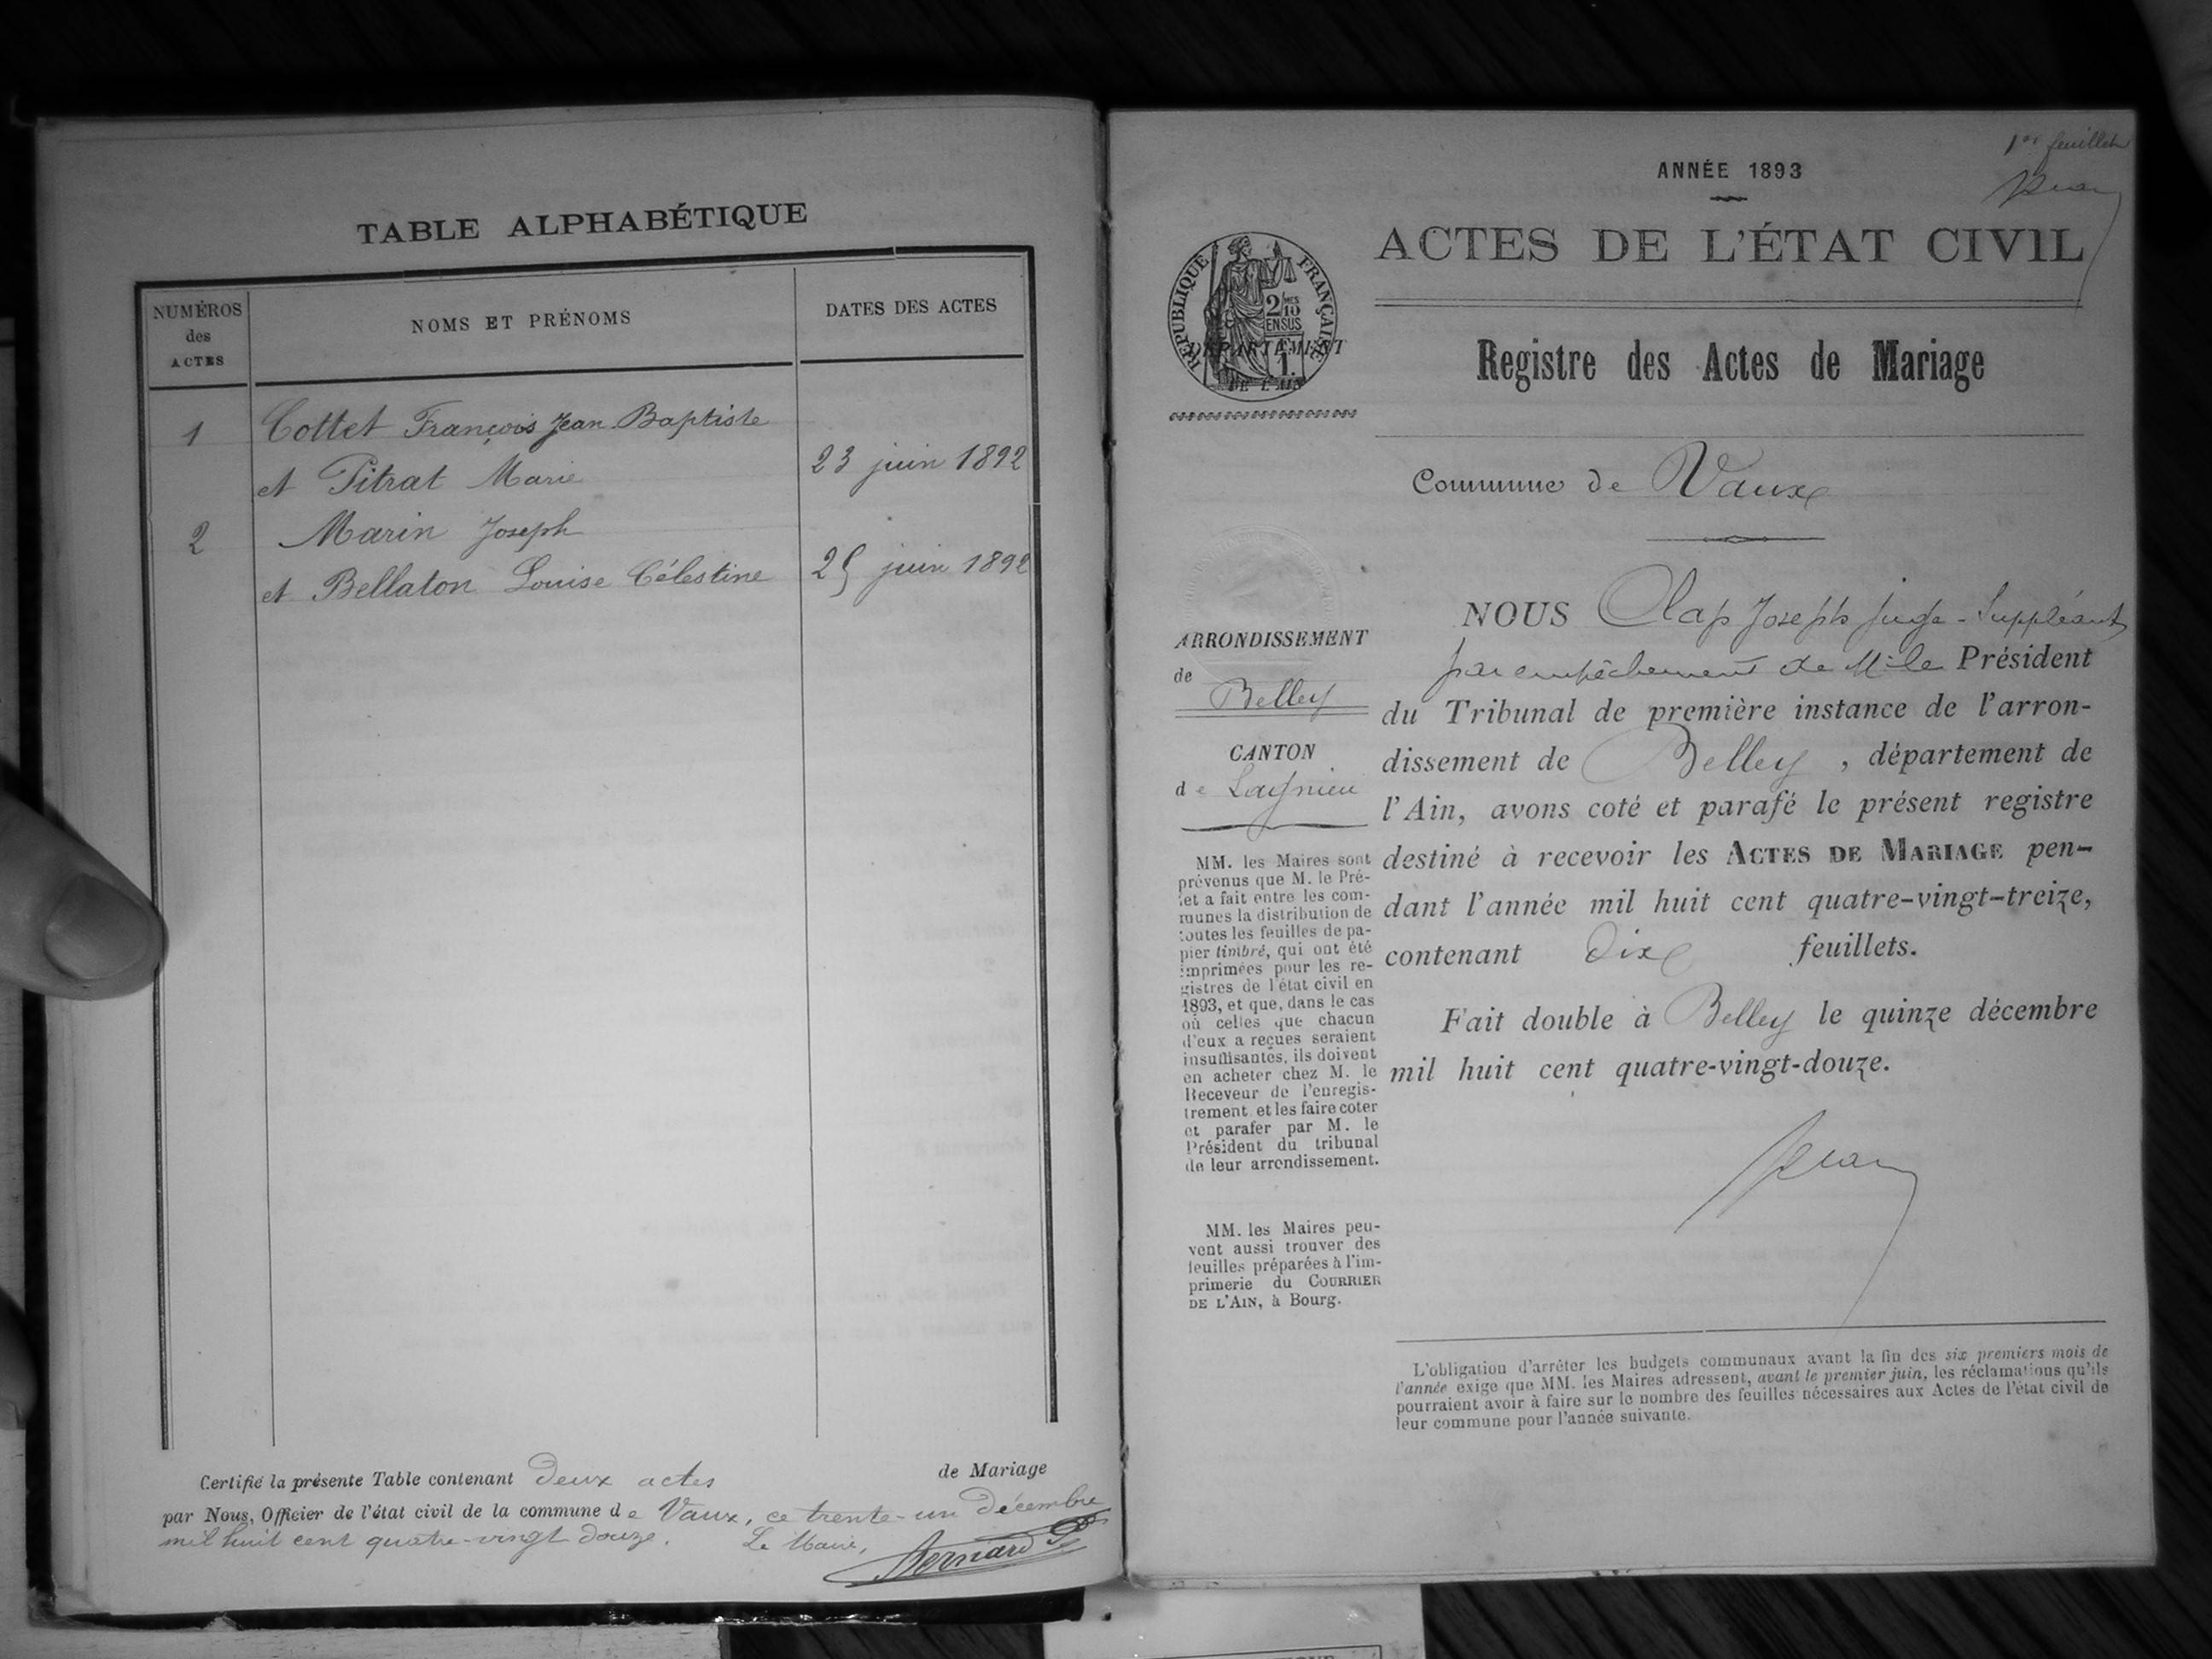 TABLE ALPHABÉTIQUE
NUMÉROS
des
ACTES
NOMS ET PRÉNOMS
DATES DES ACTES
1
Cottet François Jean Baptiste
et Pitrat Marie
23 juin 1892
2
Marin Joseph
et Bellaton Louise Célestine
25 juin 1892
Certifié la présente Table contenant deux actes de Mariage
par Nous, Officier de l'état civil de la commune de Vaux, ce trente-un Décembre
mil huit cent quatre-vingt douze. Le Maire,
Bernard
1er feuillet
ANNÉE 1893
ACTES DE L'ÉTAT CIVIL
RÉPUBLIQUE FRANÇAISE
2/10MES
EN SUS
1.
DÉPARTEMENT
DE L'AIN
Registre des Actes de Mariage
Commune de Vaux
ARRONDISSEMENT
de
Belley
CANTON
de Lagnieu
MM. les Maires sont
prévenus que M. le Pré-
fet a fait entre les com-
munes la distribution de
toutes les feuilles de pa-
pier timbré, qui ont été
imprimées pour les re-
gistres de l'état civil en
1893, et que, dans le cas
où celles que chacun
d'eux a reçues seraient
insuffisantes, ils doivent
en acheter chez M. le
Receveur de l'enregis-
trement et les faire coter
et parafer par M. le
Président du tribunal
de leur arrondissement.
MM. les Maires peu-
vent aussi trouver des
feuilles préparées à l'im-
primerie du COURRIER
DE L'AIN, à Bourg.
NOUS Clap Joseph juge-Suppléant
par empêchement de M. le Président
du Tribunal de première instance de l'arron-
dissement de Belley, département de
l'Ain, avons coté et parafé le présent registre
destiné à recevoir les ACTES DE MARIAGE pen-
dant l'année mil huit cent quatre-vingt-treize,
contenant Dix feuillets.
Fait double à Belley le quinze décembre
mil huit cent quatre-vingt-douze.
L'obligation d'arrêter les budgets communaux avant la fin des six premiers mois de
l'année exige que MM. les Maires adressent, avant le premier juin, les réclamations qu'ils
pourraient avoir à faire sur le nombre des feuilles nécessaires aux Actes de l'état civil de
leur commune pour l'année suivante.